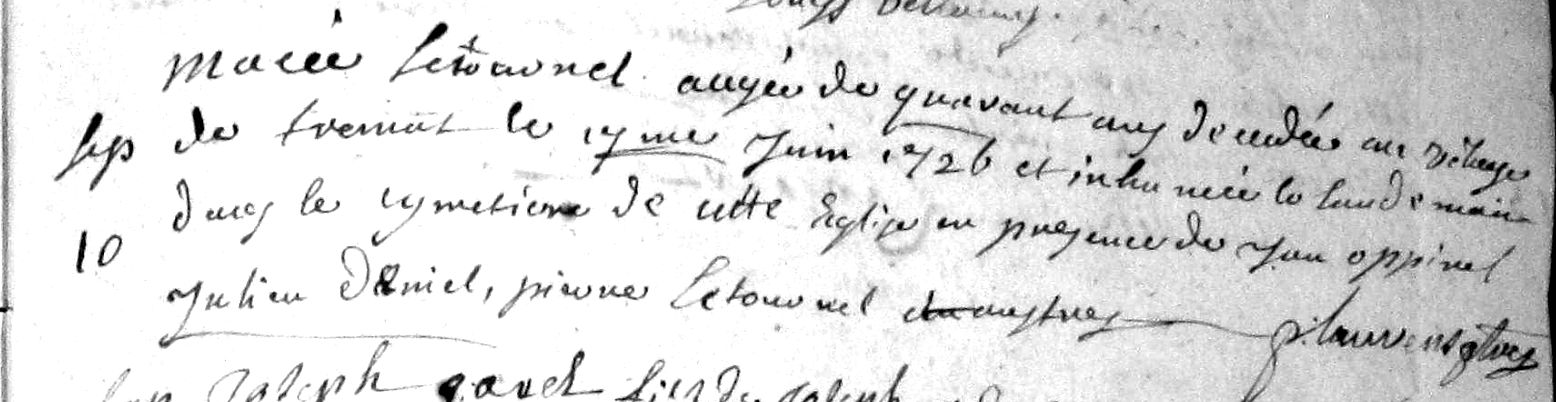 Macée Letournel aagée de quarant ans decedée au vilage
Sep de tremut le 17me Juin 1726 et inhumée le landemain
dans le cymetiere de cette Eglise en presence de Jan oppinel
10
Julien Daniel, pierre Letournel et austres
Joseph